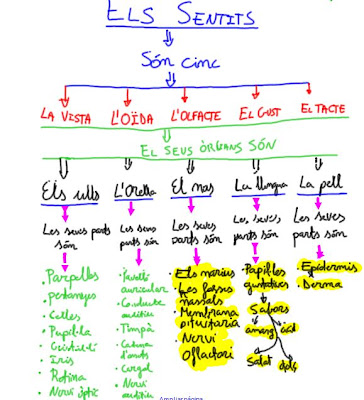 ELS SENTITS
SÓN CINC
LA VISTA
L'OÏDA
L'OLFACTE
EL GUST
EL TACTE
EL SEUS ÒRGANS SÓN
Els ulls
L'Orella
El nas
La llengua
La pell
Les seves parts són
• Parpelles
pestanyes
• Celles
• Pupil·la
• Cristal·lí
• Iris
• Retina
• Nervi òptic
Les seves parts són
• Pavelló
auricular
• Conducte
auditiu
• Timpà
• Cadena
d'ossets
• Cargol
• Nervi
auditiu
Les seves parts són
• Els narius
• Les fosses
nassals
• Membrana
pituitaria
• Nervi
Olfactori
Les seves parts són
Papil·les
gustatives
Sabors
amarg
àcid
Salat
dolç
Les seves parts són
• Epidermis
• Derma
Ampliar página